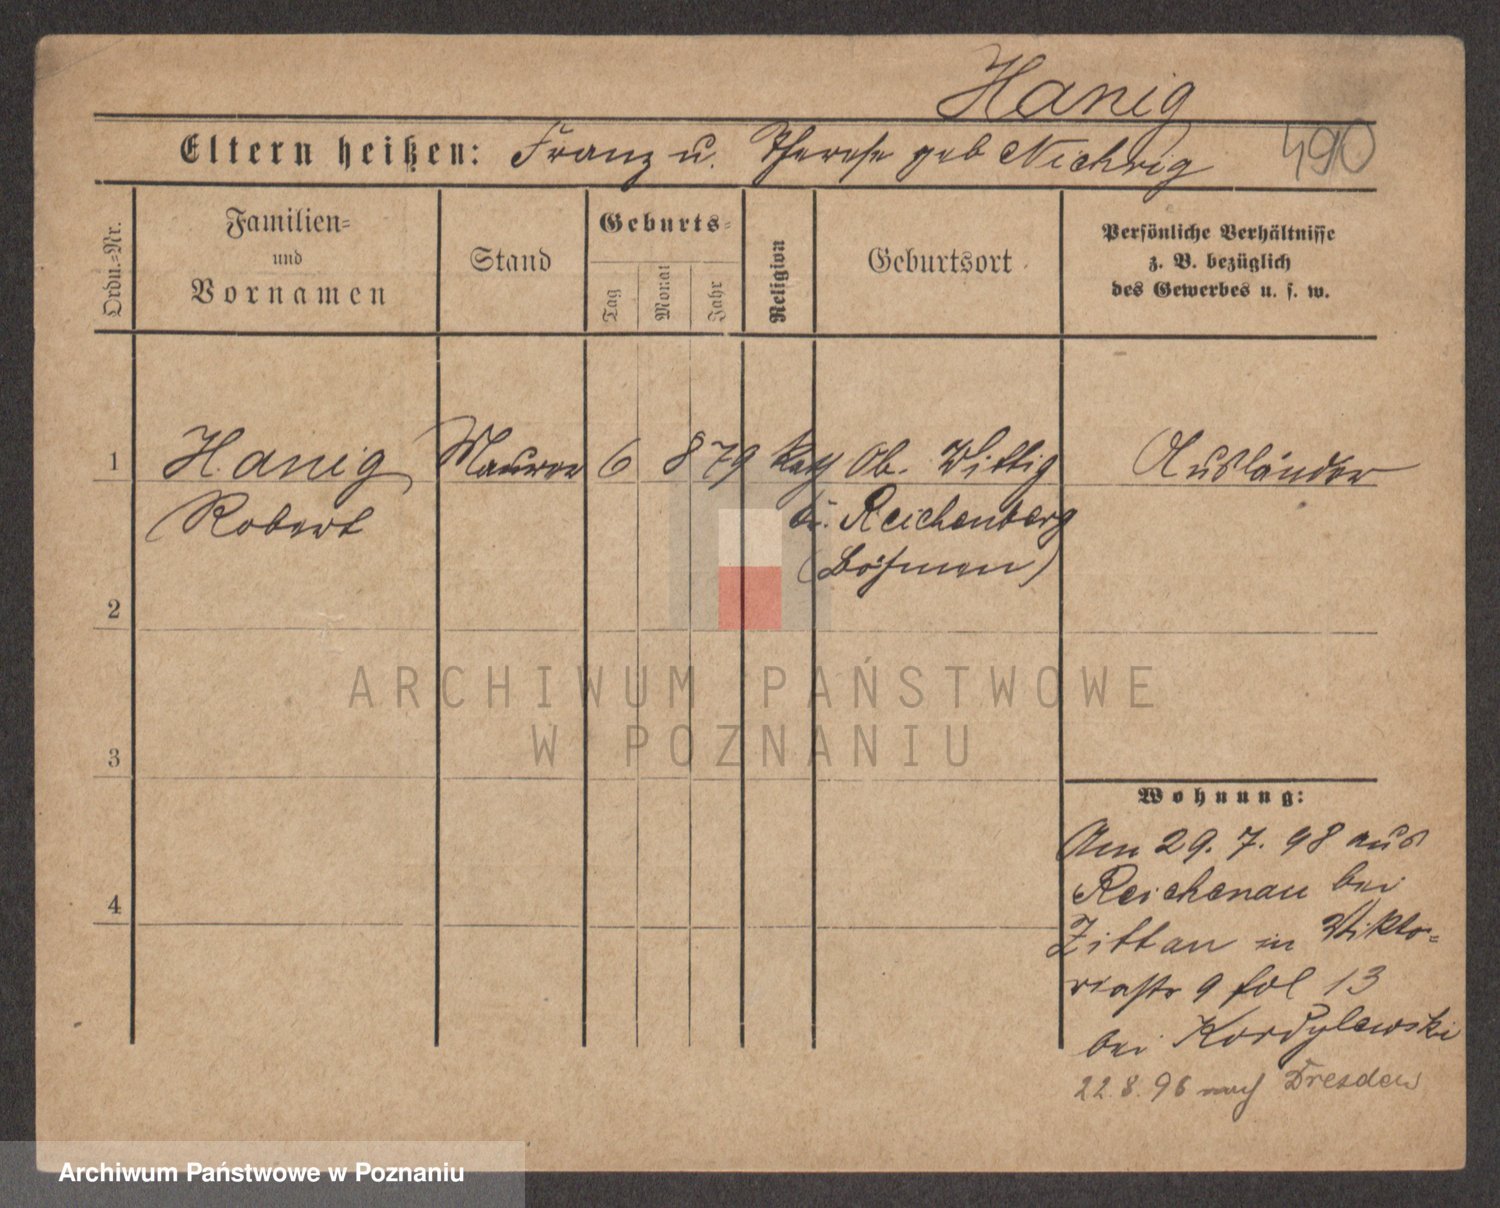 Hanig
Eltern heißen: Franz u. Therese geb Nichrig 490
Ordn.-Nr.
Familien-
und
Vornamen
Stand
Geburts-
Tag
Monat
Jahr
Religion
Geburtsort
Persönliche Verhältnisse
z. B. bezüglich
des Gewerbes u. s. w.
1 Hanig Maurer 6 8 79 Kath Ob. Wittig Ausländer
Robert b. Reichenberg
(Böhmen)
2
3
4
Wohnung:
Am 29. 7. 98 aus
Reichenau bei
Zittau in Vikto-
riastr 9 fol 13
bei Kordylewski
22. 8. 98 nach Dresden
ARCHIWUM PAŃSTWOWE
W POZNANIU
Archiwum Państwowe w Poznaniu